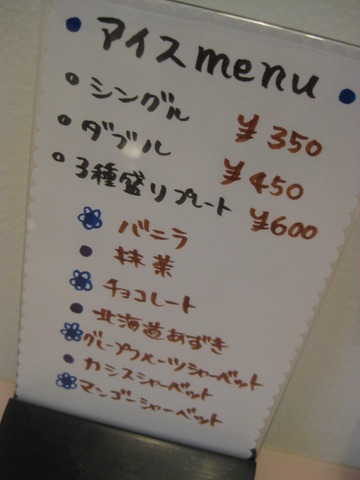 アイスmenu
シングル ¥350
ダブル ¥450
3種盛りプレート ¥600
バニラ
抹茶
チョコレート
北海道あずき
グレープフルーツシャーベット
カシスシャーベット
マンゴーシャーベット